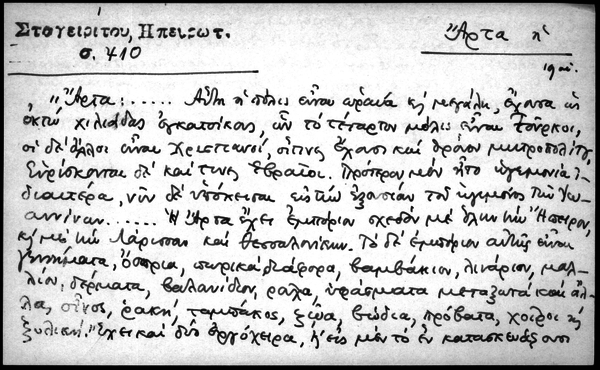 Σταγειρίτου, Ηπειρωτ.
σ. 410
Ἄρτα ἡ
19 αἰ.
„ "Ἄρτα: ..... Αὕτη ἡ πόλις εἶναι ὡραία κ̀ μεγάλη, ἔχουσα ὡς
ὀκτὼ χιλιάδας ἐγκατοίκους, ὧν τὸ τέταρτον μόλις εἶναι Τοῦρκοι,
οἱ δὲ ἄλλοι εἶναι Χριστιανοί, οἵτινες ἔχουσι καὶ θρόνον μητροπολίτου.
Εὑρίσκονται δὲ καὶ τινες Ἑβραῖοι. Πρότερον μὲν ἦτο ἡγεμονία ἰ-
διαιτέρα, νῦν δὲ ὑπόκειται εἰς τὴν ἐξουσίαν τοῦ ἡγεμόνος τῶν Ἰω-
αννίνων. ..... Ἡ Ἄρτα ἔχει ἐμπόριον σχεδὸν μὲ ὅλην τὴν Ἤπειρον,
κ̀ μὲ τὴν Λάρισσαν καὶ Θεσσαλονίκην. Τὸ δὲ ἐμπόριον αὐτῆς εἶναι
γεννήματα, ὄσπρια, πωρικὰ διάφορα, βαμβάκιον, λινάριον, μαλ-
λίον, δέρματα, βαλανίδιον, ῥάχα, ὑφάσματα μεταξωτὰ καὶ ἄλ-
λα, οἶνος, ῥακή, ταμπάκος, ζῶα, βώδια, πρόβατα, χοῖροι κ̀
ξυλική." Ἔχει καὶ δύο ἐργόχειρα, κ̀ εἰς μὲν τὸ ἓν κατασκευάζουσι